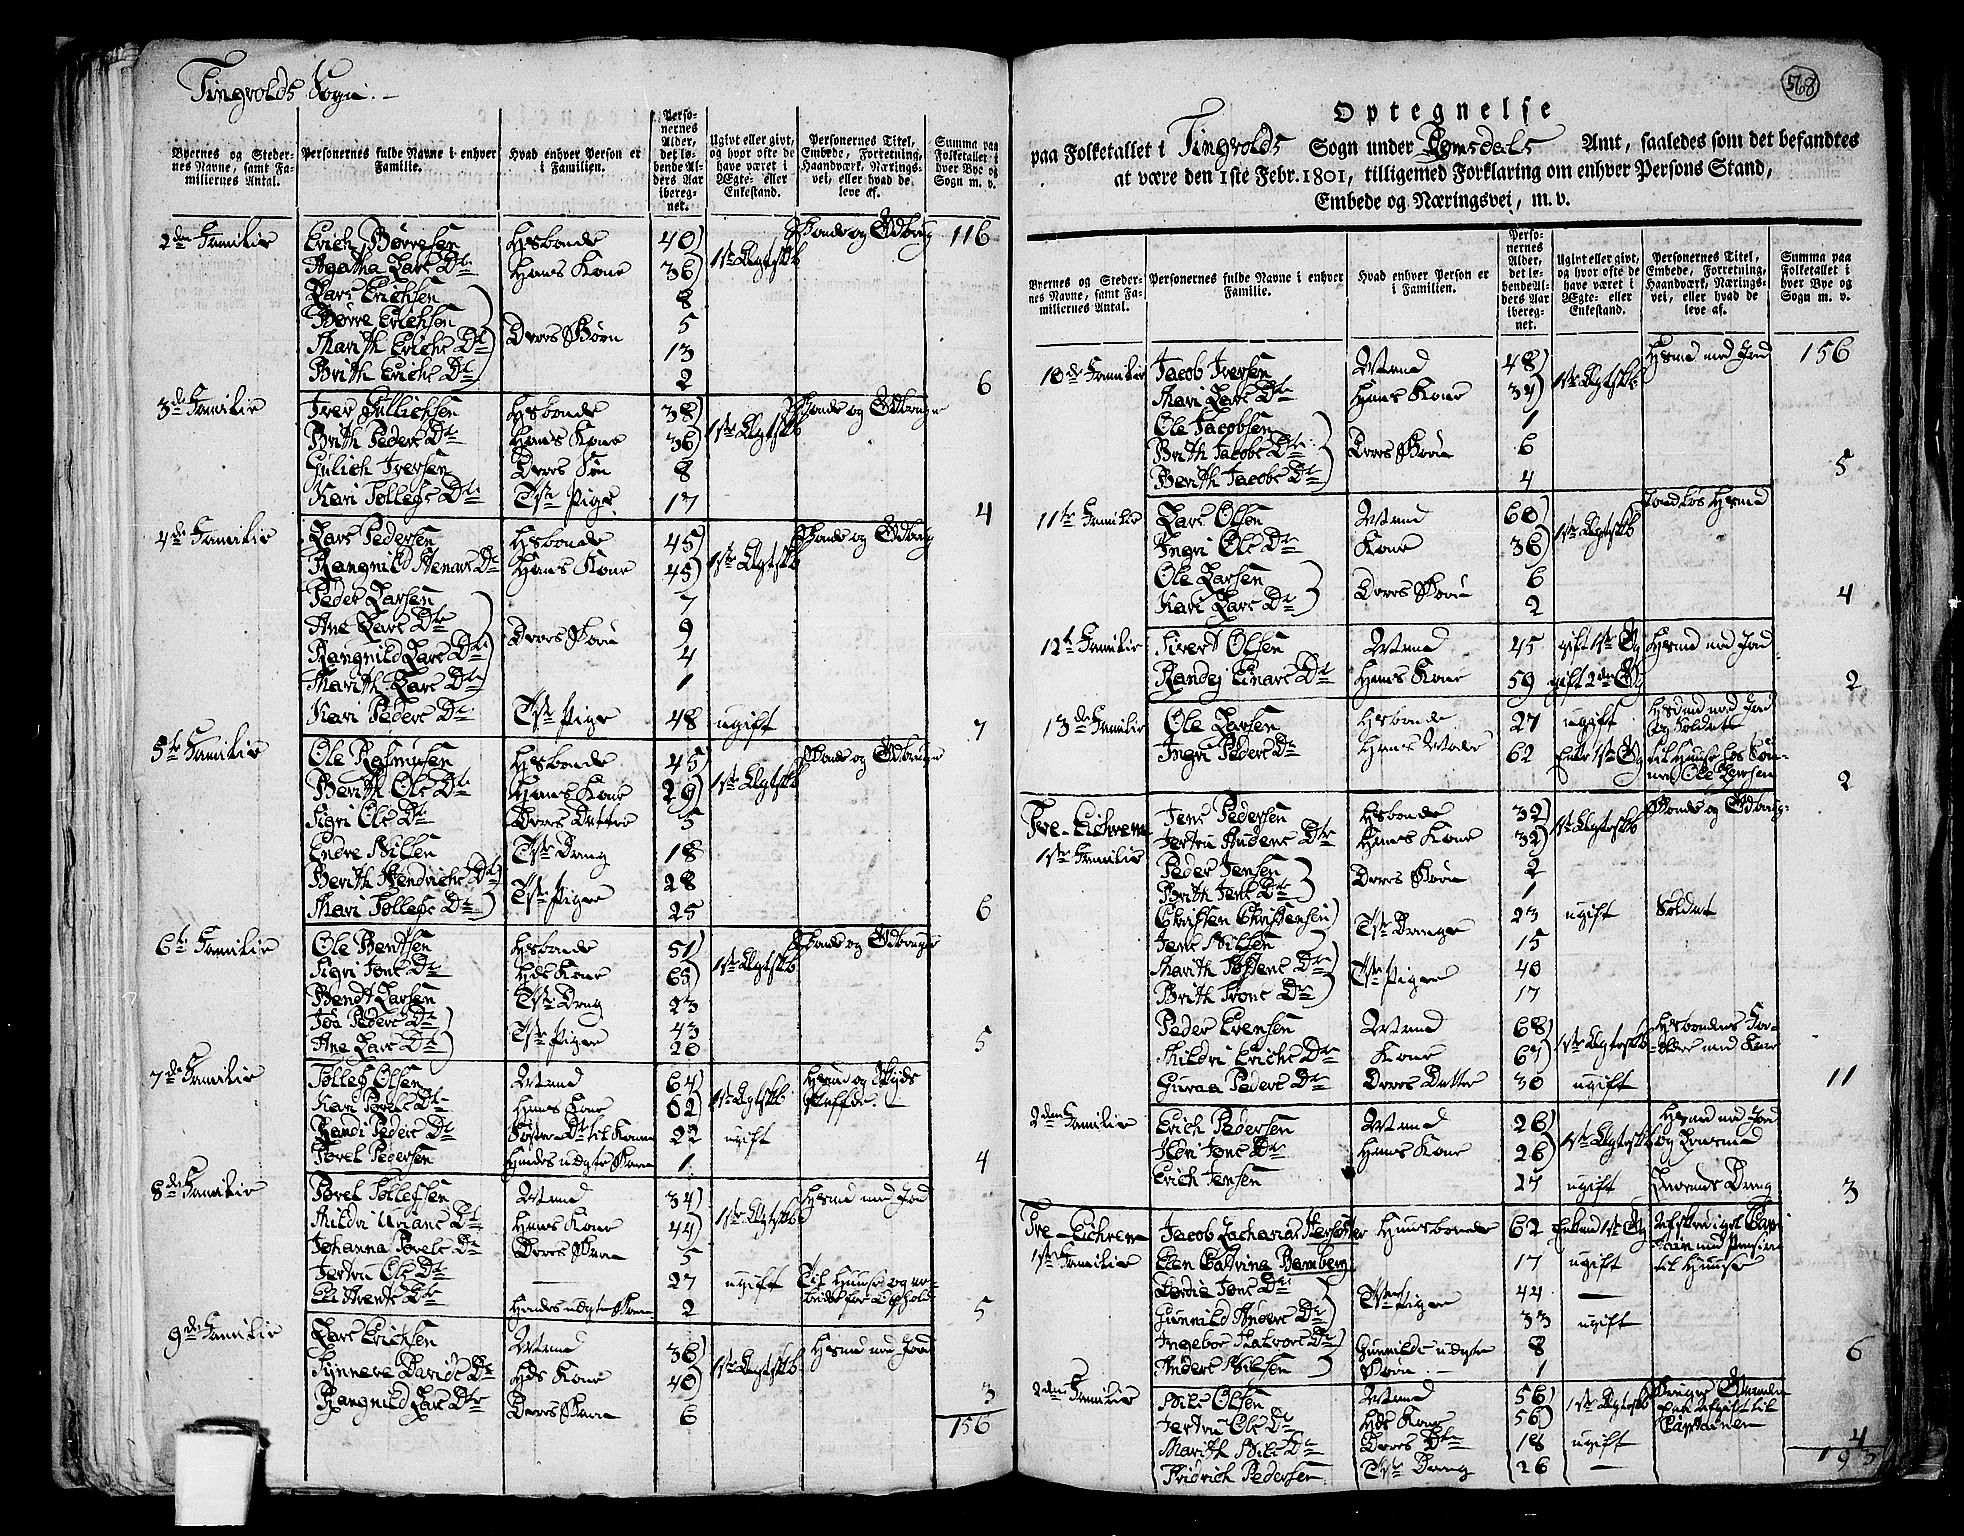 Tingvolds Sogn.
Byernes og Steder-
nes Navne, samt Fa-
miliernes Antal.
Personernes fulde Navne i enhver
Familie.
Hvad enhver Person er
i Familien.
Perso-
nernes
Alder,
det lø-
bende Al-
ders Aar
iberegnet-
net.
Ugivt eller givt,
og hvor ofte de
have været i
Ægte- eller
Enkestand.
Personernes Titel,
Embede, Forretning,
Haandværk, Nærings-
vei, eller hvad de
leve af.
Summa paa
Folketallet i
hver Bye og
Sogn m. v.
2den Familie Erich Børresen Hosbonde 40) 1ste Ægtesk Bonde og Odbrug 116
Agatha Lars Dtr Hans Kone 36)
Lars Erichsen 8
Børre Erichsen Deres Børn 5
Marith Erichs Dtr 13
Brith Erichs Dtr 2
6
3de Familie Iver Gullichsen Hosbonde 38) 1ste Ægtesk Bonde og Odbruger
Brith Peders Dtr Hans Kone 36)
Gulich Iversen Deres Søn 8
Kari Tollefs Dtr Tste Pige 17
4
4de Familie Lars Pedersen Hosbonde 45) 1ste Ægtesk Bonde og Odbrug
Rangnild Stenars Dtr Hans Kone 45)
Peder Larsen 7
Ane Lars Dtr Deres Børn 9
Rangnild Lars Dtr 4
Marith Lars Dtr 1
Kari Peders Dtr Tste Pige 48 ugift
7
5te Familie Ole Rasmusen Hosbonde 45) 1ste Ægtesk Bonde og Odbruger
Berith Ols Dtr Hans Kone 29)
Sigri Ols Dtr Deres Datter 5
Endre Nilsen Tste Dreng 18
Berith Hendrichs Dtr Tste Piger 28
Mari Tollefs Dtr 25
6
6te Familie Ole Bendtsen Hosbonde 51) 1ste Ægtesk Bonde og Odbruger
Sigri Jons Dtr Hds Kone
Bendt Larsen Tste Dreng 23
Peders Dtr Tste Piger 43
Ane Lars Dtr 20
5
7de Familie Tollef Olsen Mand 64) 1ste Ægtesk
Kari Povels Dtr Hans Kone 62)
Randi Peders Dtr Søster Dtr til Konen 22 ugift
Povel Pedersen Hendes uægte Søn 1
4
8de Familie Povel Tollefsen Mand 34) 1ste Ægtesk Husmd med Jord
Mildri Urians Dtr Hans Kone 44)
Johanna Povels Dtr Deres Barn 5
Jertru Ols Dtr — 27 ugift Til Huuse og
Eli Arents Dtr Hendes uægte Barn 2
5
9de Familie Lars Erichsen Mand 36) 1ste Ægtesk Husmd med Jord
Synneve Davids Dtr Hds Kone 40)
Rangnild Lars Dtr Deres Barn 6
3
156
568
Optegnelse
paa Folketallet i Tingvolds Sogn under Romsdals Amt, saaledes som det befandtes
at være den 1ste Febr. 1801, tilligemed Forklaring om enhver Persons Stand,
Embede og Næringsvei, m. v.
Byernes og Steder-
nes Navne, samt Fa-
miliernes Antal.
Personernes fulde Navne i enhver
Familie.
Hvad enhver Person er
i Familien.
Perso-
nernes
Alder,
det lø-
bende Al-
ders Aar
ibereg-
net.
Ugivt eller givt,
og hvor ofte de
have været i
Ægte- eller
Enkestand.
Personernes Titel,
Embede, Forretning,
Haandværk, Nærings-
vei, eller hvad de
leve af.
Summa paa
Folketallet i
hver Bye og
Sogn m. v.
10de Familie Jacob Iversen Mand 48) 1ste Ægtesk Husmd med Jord 156
Mari Lars Dtr Hans Kone 34)
Ole Jacobsen 1
Brith Jacobs Dtr Deres Børn 6
Berith Jacobs Dtr 4
5
11te Familie Lars Olsen Mand 60) 1ste Ægtesk Jordløs Husmd
Ingri Ols Dtr Kone 36)
Ole Larsen Deres Børn 6
Kari Lars Dtr 2
4
12te Familie Sivert Olsen Mand 45 gift 1ste Æg Husmd med Jord
Randej Einars Dtr Hans Kone 59 gift 2den Æg
2
13de Familie Ole Larsen Hosbonde 27 ugift Husmd med Jord
og Soldat
Ingri Peders Dtr Hans Moder 62 Enke 1ste Æg til Huuse hos Søn-
nen Ole Larsen
2
Tre-Eichrem Jens Pedersen Hosbonde 32) 1ste Ægtesk Bonde og Odbrug-
1ste Familie Jertru Anders Dtr Hans Kone 32)
Peder Jensen Deres Børn 2
Brith Jens Dtr 1
Christen Christensen Tste Drenge 23 ugift Soldat
Jens Nilsen 15
Marith Dtr Tste Piger 40
Brith Trons Dtr 17
Peder Evensen Mand 68) 1ste Ægtesk Hosbondens For-
ældre med Kone
Mildri Erichs Dtr Kone 67)
Guraa Peders Dtr Deres Datter 30 ugift
11
2den Familie Erich Pedersen Mand 26) 1ste Ægtesk Husmd med Jord
Jons Dtr Hans Kone 26)
Erich Jensen 27 ugift Dreng
3
Tre-Eichrem Jacob Zacharias Huusbonde 62 Enkemd 1ste Æg Afskediget Capi-
tain med Pension
1ste Familie Elen Catrina Bamberg 17 ugift til Huuse
Jons Dtr Tste Piger 44 —
Gunnild Anders Dtr 33 ugift
Ingebor Halvors Dtr Gunnilds uægte 8
Anders Nilsen Børn — 1
6
2den Familie Nils Olsen Mand 56) 1ste Ægtesk
Jertru Ols Dtr Hds Kone 56)
Marith Nils Dtr Deres Dtr 18 ugift
Fridrich Pedersen Tste Dreng 26 —
4
193